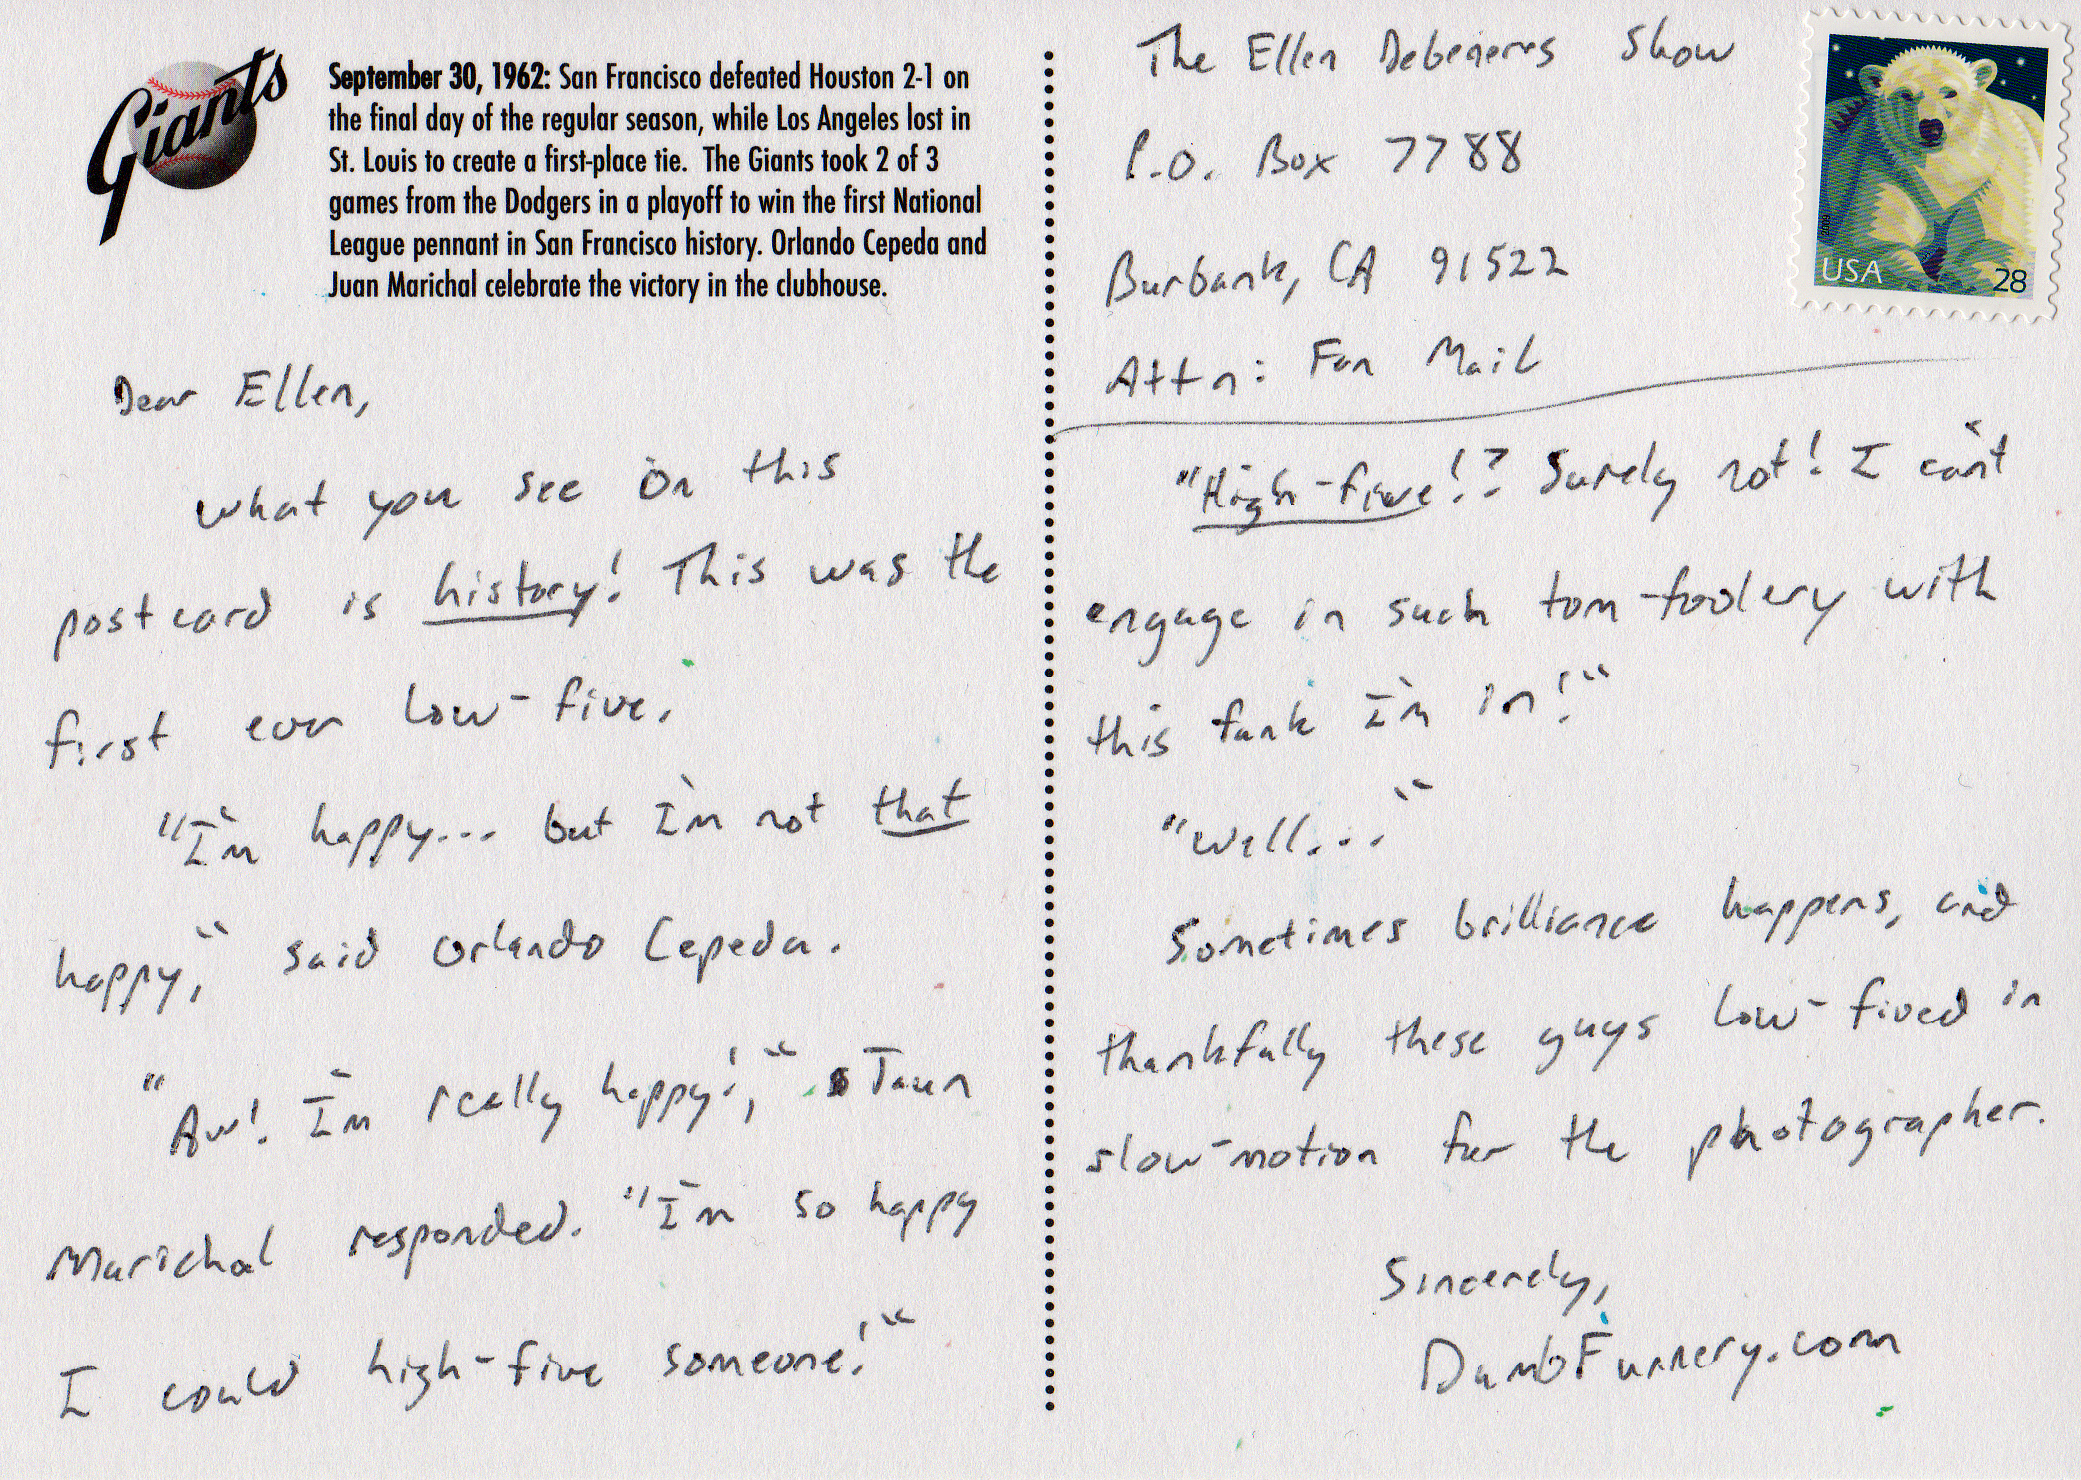 Giants
September 30, 1962: San Francisco defeated Houston 2-1 on
the final day of the regular season, while Los Angeles lost in
St. Louis to create a first-place tie. The Giants took 2 of 3
games from the Dodgers in a playoff to win the first National
League pennant in San Francisco history. Orlando Cepeda and
Juan Marichal celebrate the victory in the clubhouse.
Dear Ellen,
What you see on this
postcard is history! This was the
first ever low-five.
"I'm happy... but I'm not that
happy," said Orlando Cepeda.
"Aw! I'm really happy!," Jaun
Marichal responded. "I'm so happy
I could high-five someone!"
The Ellen Degeneres Show
P.O. Box 7788
Burbank, CA 91522
Attn: Fan Mail
USA 28
"High-five!? Surely not! I can't
engage in such tom-foolery with
this funk I'm in!"
"Well..."
Sometimes brilliance happens, and
thankfully these guys low-fived in
slow-motion for the photographer.
Sincerely,
DumbFunnery.com